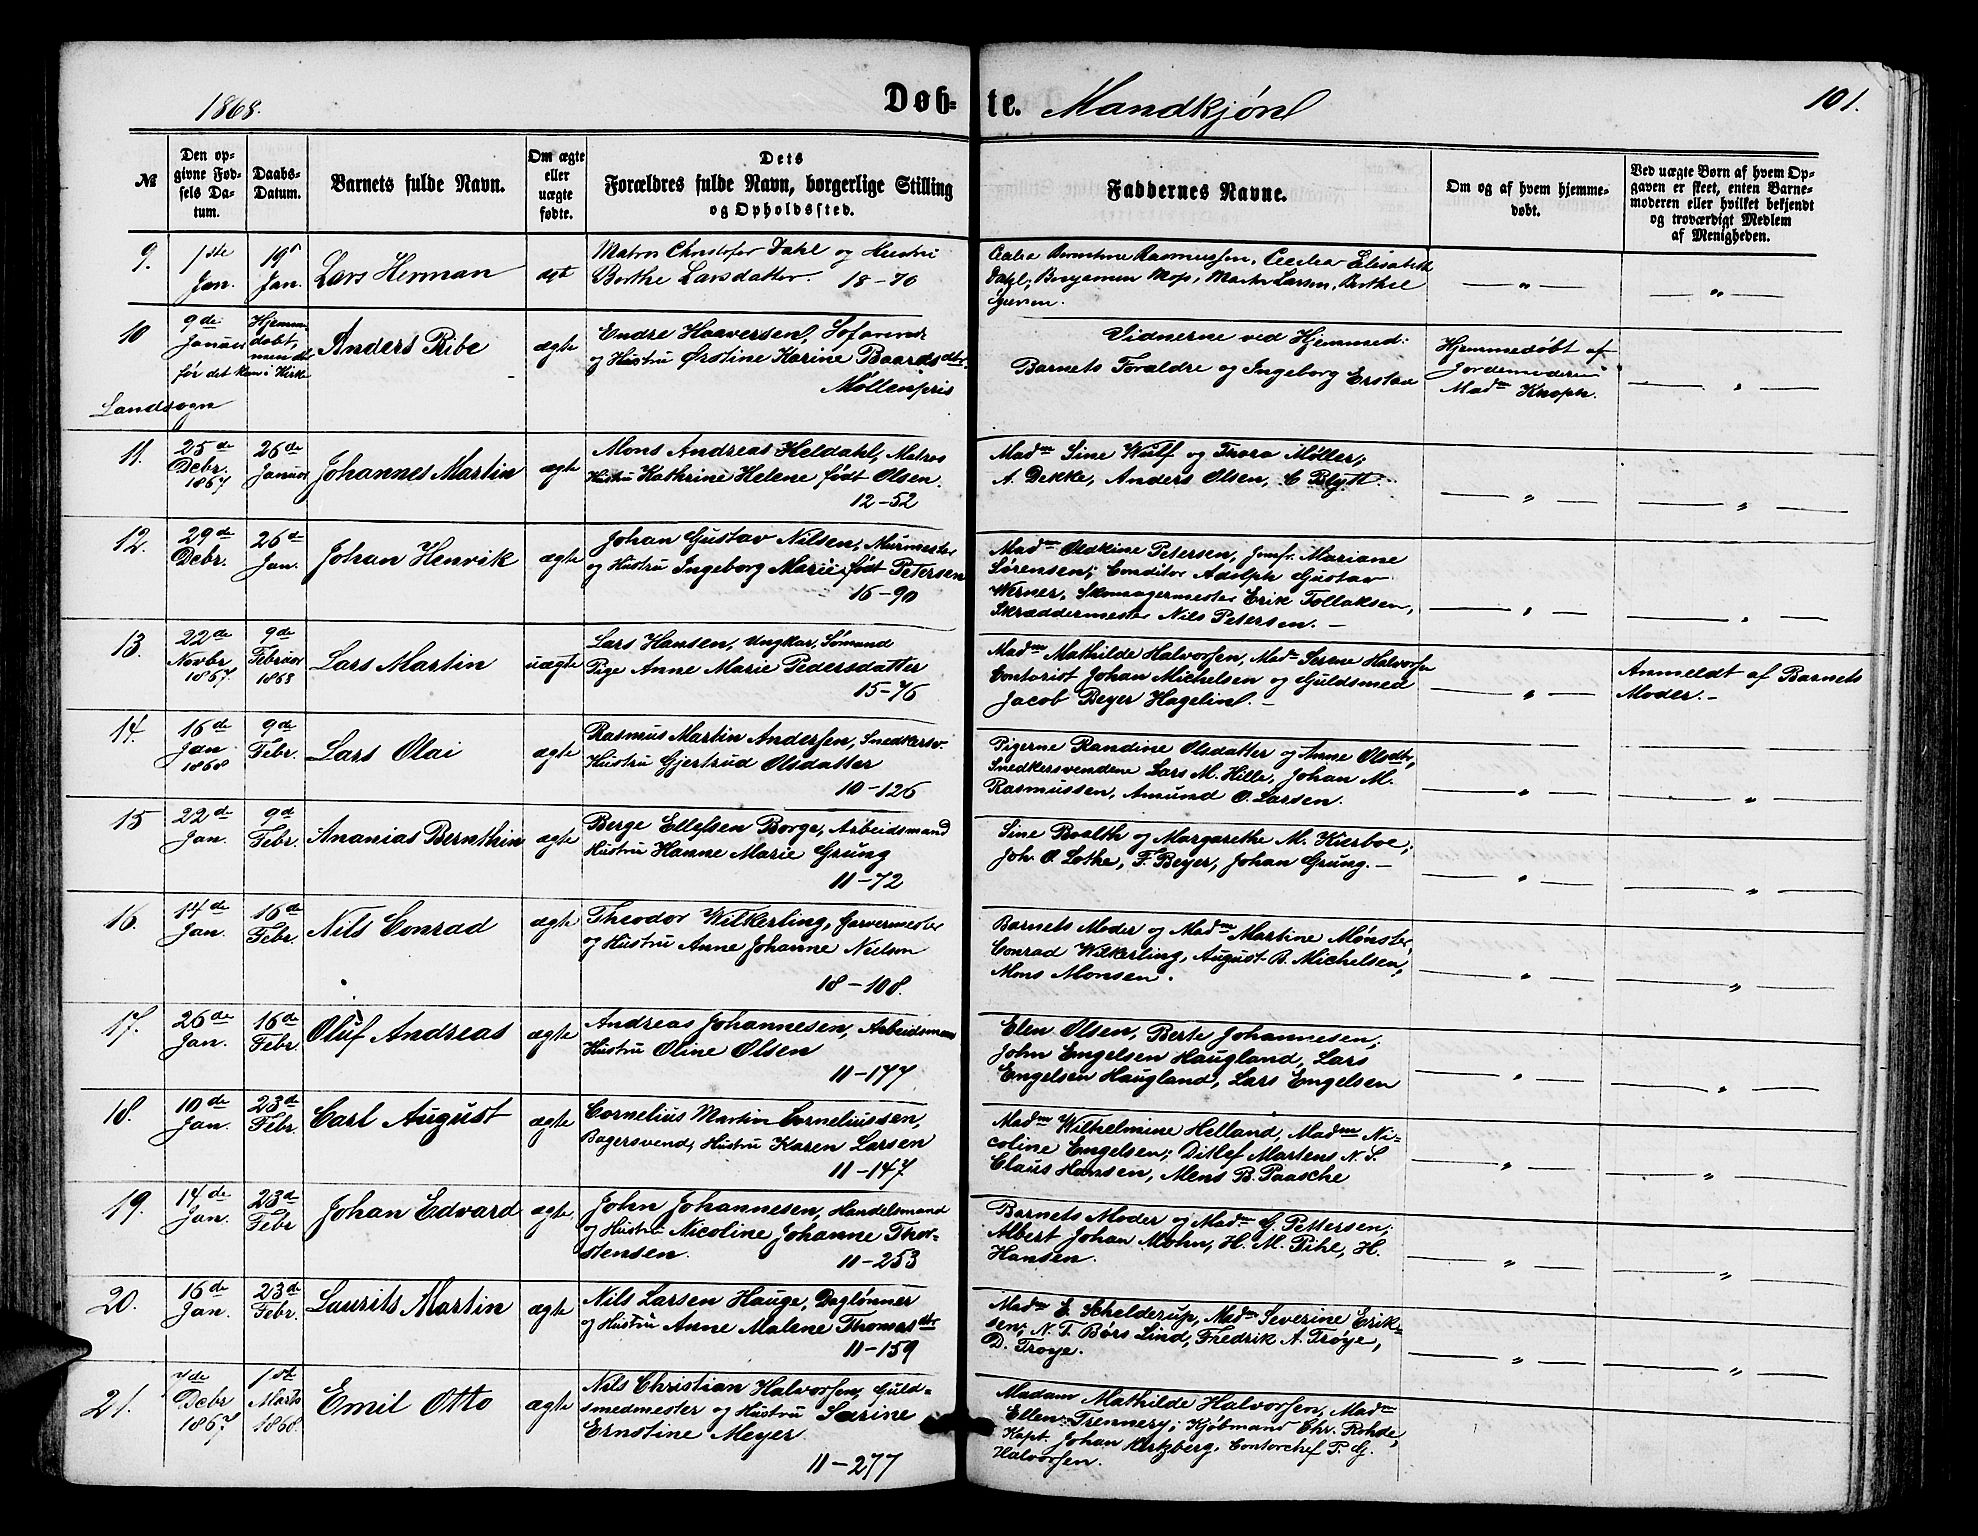 1868.
Døb-
te.
Mandkjøn
101.
№
Den op-
givne Fød-
sels Da-
tum.
Daabs-
Datum.
Barnets fulde Navn.
Om ægte
eller
uægte
fødte.
Dets
Forældres fulde Navn, borgerlige Stilling
og Opholdssted.
Faddernes Navne.
Om og af hvem hjemme-
døbt.
Ved uægte Børn af hvem Op-
gaven er skeet, enten Barne-
moderen eller hvilket bekjendt
og troværdigt Medlem
af Menigheden.
9.
1ste
Jan.
19
Jan.
Lars Herman
ægt
Matros Christofer Dahl og Hustru
Berthe Larsdatter. 18-70
Rasmussen, Cecilia Elisabeth
Dahl, Benjamin Larsen, Berthel
Iversen.
10
9de
Januar
Hjemme-
døbt,
men død
før det kom i Kirke
Anders Ribe
ægte
Endre Haaversen, Sømand
og Hustru Østine Karine Baardsdtr.
Møllenpris
Vidnerne ved Hjemmed:
Barnets Forældre og Ingeborg Erstad
Hjemmedøbt af
Jordemoderen
Madm Knoph.
Landsogn
11.
25de
Decbr.
1867
26de
Januar
Johannes Martin
ægte
Mons Andreas Heldahl, Matros
Hustru Kathrine Helene født Olsen.
12-52
Madm Sine Wulf og Thora Møller;
A. Dekke, Anders Olsen, C Blytt.
12.
29de
Decbr.
26de
Jan.
Johan Henrik
ægte
Johan Gustav Nilsen, Murmester
og Hustru Ingeborg Marie født Petersen
16-90
Madm Oldkine Petersen, Jomfr. Mariane
Sørensen; Conditor Adolph Gustav
Werner, Skomagermester Erik Tollaksen,
Skræddermester Nils Petersen.-
13.
22de
Novbr
1867.
9de
Februar
1868
Lars Martin
uægte
Lars Hansen, Ungkar, Sømand
Pige Anne Marie Pedersdatter
15-76
Madm Mathilde Halvorsen, Madm Serene Halvorsen
Contorist Johan Michelsen og Guldsmed
Jacob Beyer Hagelin.-
Anmeldt af Barnets
Moder.-
14.
16de
Jan.
1868
9de
Febr.
Lars Olai
ægte
Rasmus Martin Andersen, Snedkersv.
Hustru Gjertrud Olsdatter
10-126
Pigerne Randine Olsdatter og Anne Olsdtr,
Snedkersvendene Lars M. Hille, Johan M.
Rasmussen, Amund O. Larsen.
15
22de
Jan.
9de
Febr.
Ananias Bernthin
ægte
Berge Ellefsen Borge, Arbeidsmand
Hustru Hanne Marie Grung
11-72
Sine Boalth og Margarethe M. Kierboe;
Joh. O. Lothe, F. Beyer, Johan Grung.-
16.
14de
Jan.
16de
Febr.
Nils Conrad
ægte
Theodor Wilkerling, Garvermester
og Hustru Anne Johanne Nielsen
18-108.
Barnets Moder og Madm Martine Mønster,
Conrad Wilkerling, August B. Michelsen,
Mons Monsen.
17.
26de
Jan.
16de
Febr.
Oluf Andreas
ægte
Andreas Johannesen, Arbeidsmand
Hustru Oline Olsen
11-177
Elen Olsen, Berte Johannesen;
John Engelsen Haugland, Lars
Engelsen Haugland, Lars Engelsen
18.
10de
Jan.
23de
Febr.
Carl August
ægte
Cornelius Martin Corneliussen,
Bagersvend, Hustru Karen Larsen
11-147
Madm Wilhelmine Helland, Madm Ni-
coline Engelsen; Ditlef Martens N. S.
Claus Hansen, Mens B. Paasche
19.
14de
Jan.
23de
Febr
Johan Edvard
ægte
John Johannesen, Handelsmand
og Hustru Nicoline Johanne Thor-
stensen.
11-253
Barnets Moder og Madm G. Pettersen;
Albert Johan Mohn, H. M. Pihl, H.
Hansen.
20.
16de
Jan.
23de
Febr.
Laurits Martin
ægte
Nils Larsen Hauge, Daglønner
og Hustru Anne Malene Thomasdtr
11-159
Madm E. Schelderup, Madm Severine Erik-
sen; N. T. Børs Lind, Fredrik A. Trøye,
D. Troye.
21.
de
Decbr
1867
1ste
Marts
1868.
Emil Otto
ægte
Nils Christian Halvorsen, Guld-
smedmester og Hustru Sarine
Ernstine Meyer.
11-277
Madam Mathilde Halvorsen, Madm
Ellen Trennery; Kjøbmand Chr. Rohde,
Kapt. Johan Hertzberg, Contorchef P. G.
Halvorsen.